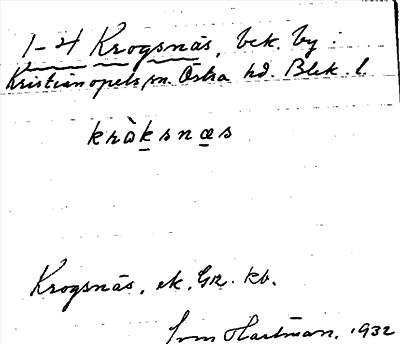 1-4 Krogsnäs, bek. by i
Kristianopels sn. Östra hd. Blek. l.
kràksnæs
Krogsnäs, ek. Gr. kb.
Hartman, 1932